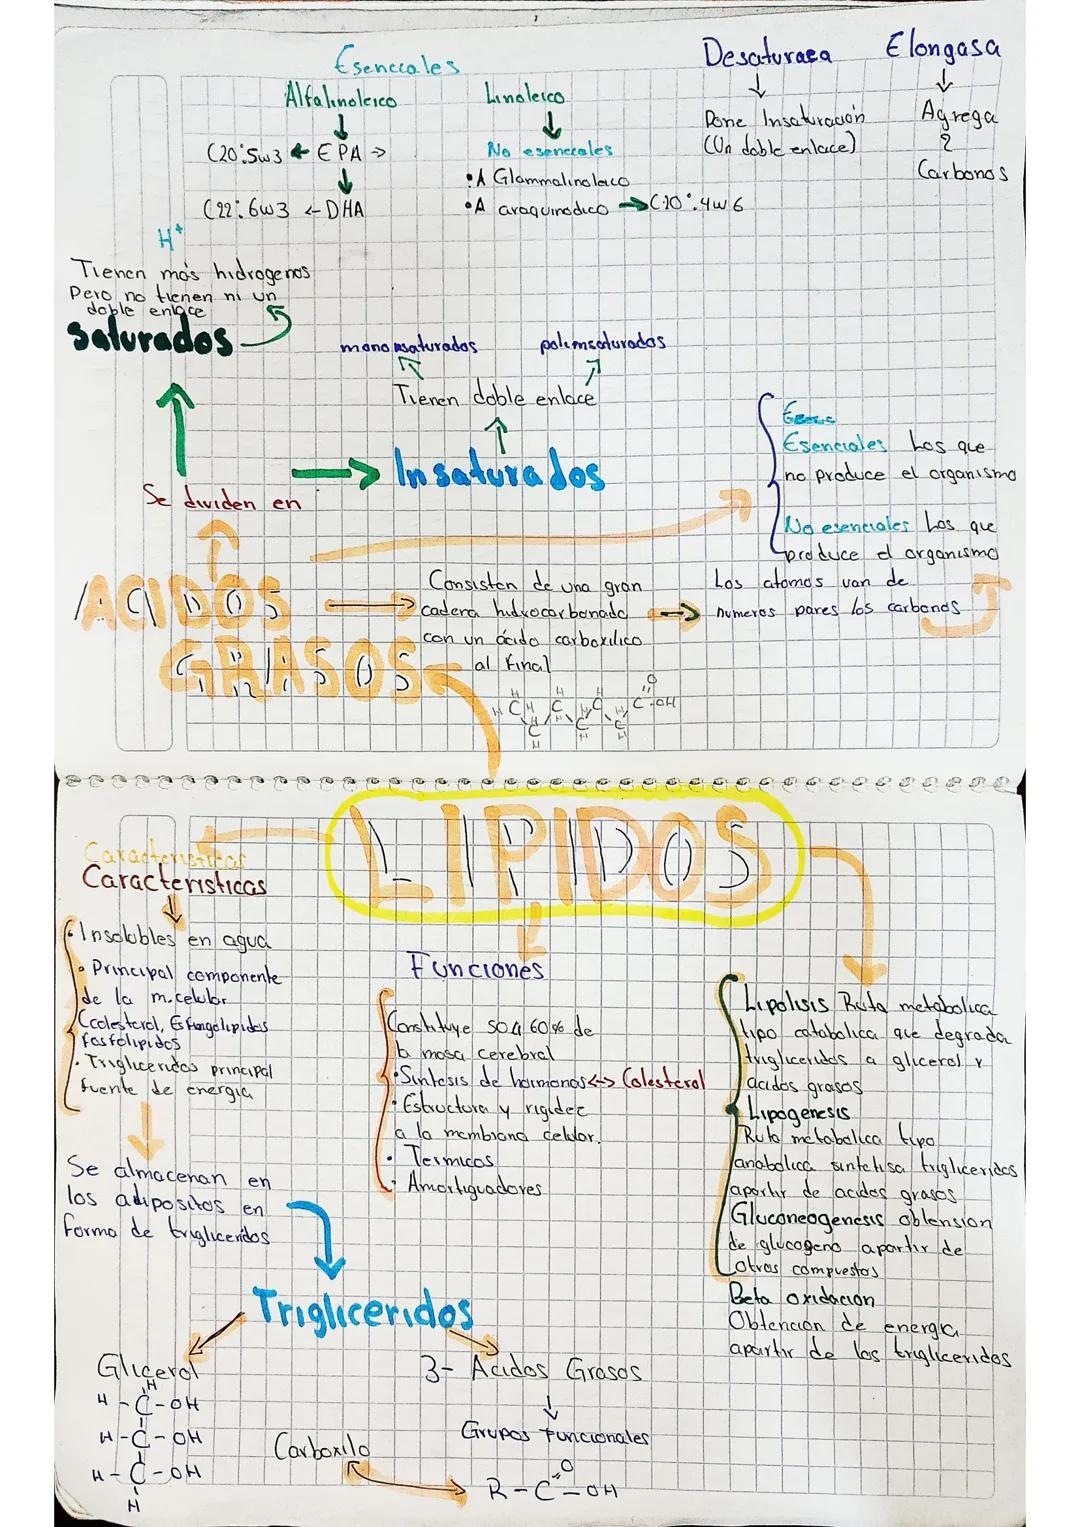 Esenciales
Alfalinoleico
Linoleico
C20:5w3 ← EPA →
C22:6w3 ← DHA
No esenciales
•A Glammalinoleico
•A araquinodico → C20:4w6
Desaturasa
Pone Insaturación
(Un doble enlace)
Elongasa
Agrega
2
Carbonos
H+
Tienen más hidrogenos
Pero no tienen ni un
doble enlace
Saturados
monoinsaturados
poliinsaturados
Tienen doble enlace
Insaturados
Se dividen en
Esenciales Los que
no produce el organismo
No esenciales Los que
produce el organismo
ACIDOS
GRASOS
Consisten de una gran
cadena hidrocarbonada
con un ácido carboxilico
al final
Los atomos van de
numeros pares los carbonos
LIPIDOS
Caracteristicas
Caracteristicas
• Insolubles en agua
• Principal componente
de la m.celular
Ccolesterol, Esfingolipidos
fosfolipidos
• Trigliceridos principal
fuente de energia
Se almacenan en
los adipositos en
forma de trigliceridos
Funciones
Constituye 50 a 60% de
la masa cerebral
• Sintesis de hormonas <-> Colesterol
• Estructura y rigidez
a la membrana celular.
• Termicos
• Amortiguadores
Lipolisis Ruta metabolica
tipo catabolica que degrada
trigliceridos a glicerol y
acidos grasos
• Lipogenesis
Ruta metabolica tipo
anabolica sintetisa trigliceridos
apartir de acidos grasos
Gluconeogenesis obtension
de glucogeno apartir de
otros compuestos
Beta oxidacion
Obtención de energia
apartir de los trigliceridos
Trigliceridos
Glicerol
H
H - C - OH
H - C - OH
H - C - OH
H
3- Acidos Grasos
Grupos Funcionales
Carboxilo
O
R - C - OH